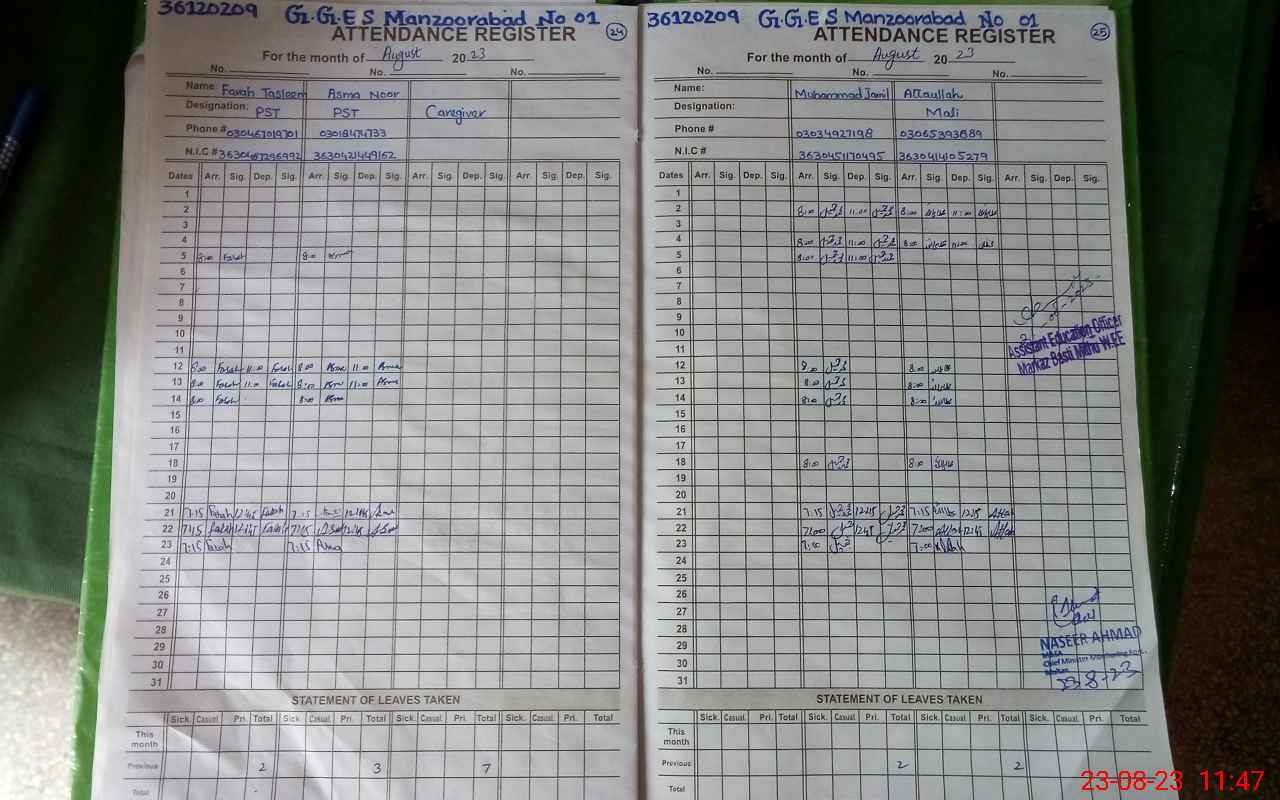 36120209 G.G.E S Manzoorabad No 01
ATTENDANCE REGISTER 24
For the month of August 2023
No. No. No.
Name: Farah Tasleem Asma Noor
Designation: PST PST Caregiver
Phone # 03018474733
N.I.C # 3630467296992 3630421449162
Dates Arr. Sig. Dep. Sig. Arr. Sig. Dep. Sig. Arr. Sig. Dep. Sig. Arr. Sig. Dep. Sig.
1
2
3
4
5 8:00 Farah 8:00
6
7
8
9
10
11
12 8:00 Farah 11:00 Farah 8:00 Asma 11:00 Asma
13 8:00 Farah 11:00 Farah 8:00 Asma 11:00 Asma
14 8:00 Farah 8:00 Asma
15
16
17
18
19
20
21 7:15 Farah 12:45 Farah 7:15 12:45
22 7:15 Farah 12:45 Farah 7:15 12:45
23 7:15 Farah 7:15 Asma
24
25
26
27
28
29
30
31
STATEMENT OF LEAVES TAKEN
Sick. Casual. Pri. Total Sick. Casual. Pri. Total Sick. Casual. Pri. Total Sick. Casual. Pri. Total
This month
Previous 2 3 7
Total
36120209 G.G.E S Manzoorabad No 01
ATTENDANCE REGISTER 25
For the month of August 2023
No. No. No.
Name: Muhammad Jamil Attaullah
Designation: Mali
Phone # 03034927198 03065393689
N.I.C # 3630451170495 3630414105279
Dates Arr. Sig. Dep. Sig. Arr. Sig. Dep. Sig. Arr. Sig. Dep. Sig. Arr. Sig. Dep. Sig.
1
2 8:00 11:00 8:00 11:00
3
4 8:00 11:00 8:00 11:00
5 8:00 11:00
6
7
8
9
10
11
Assistant Education Officer
Markaz Basti Mithu W.EE
12 8:00 8:00
13 8:00 8:00
14 8:00 8:00
15
16
17
18 8:00 8:00
19
20
21 7:15 12:45 7:15 12:45
22 7:00 12:45 7:00 12:45
23 7:00 7:00
24
25
26
27
28
29
30
31
NASEER AHMAD
MEA
Chief Minister Monitoring
23-8-23
STATEMENT OF LEAVES TAKEN
Sick. Casual. Pri. Total Sick. Casual. Pri. Total Sick. Casual. Pri. Total Sick. Casual. Pri. Total
This month
Previous 2 2
Total
23-08-23 11:47